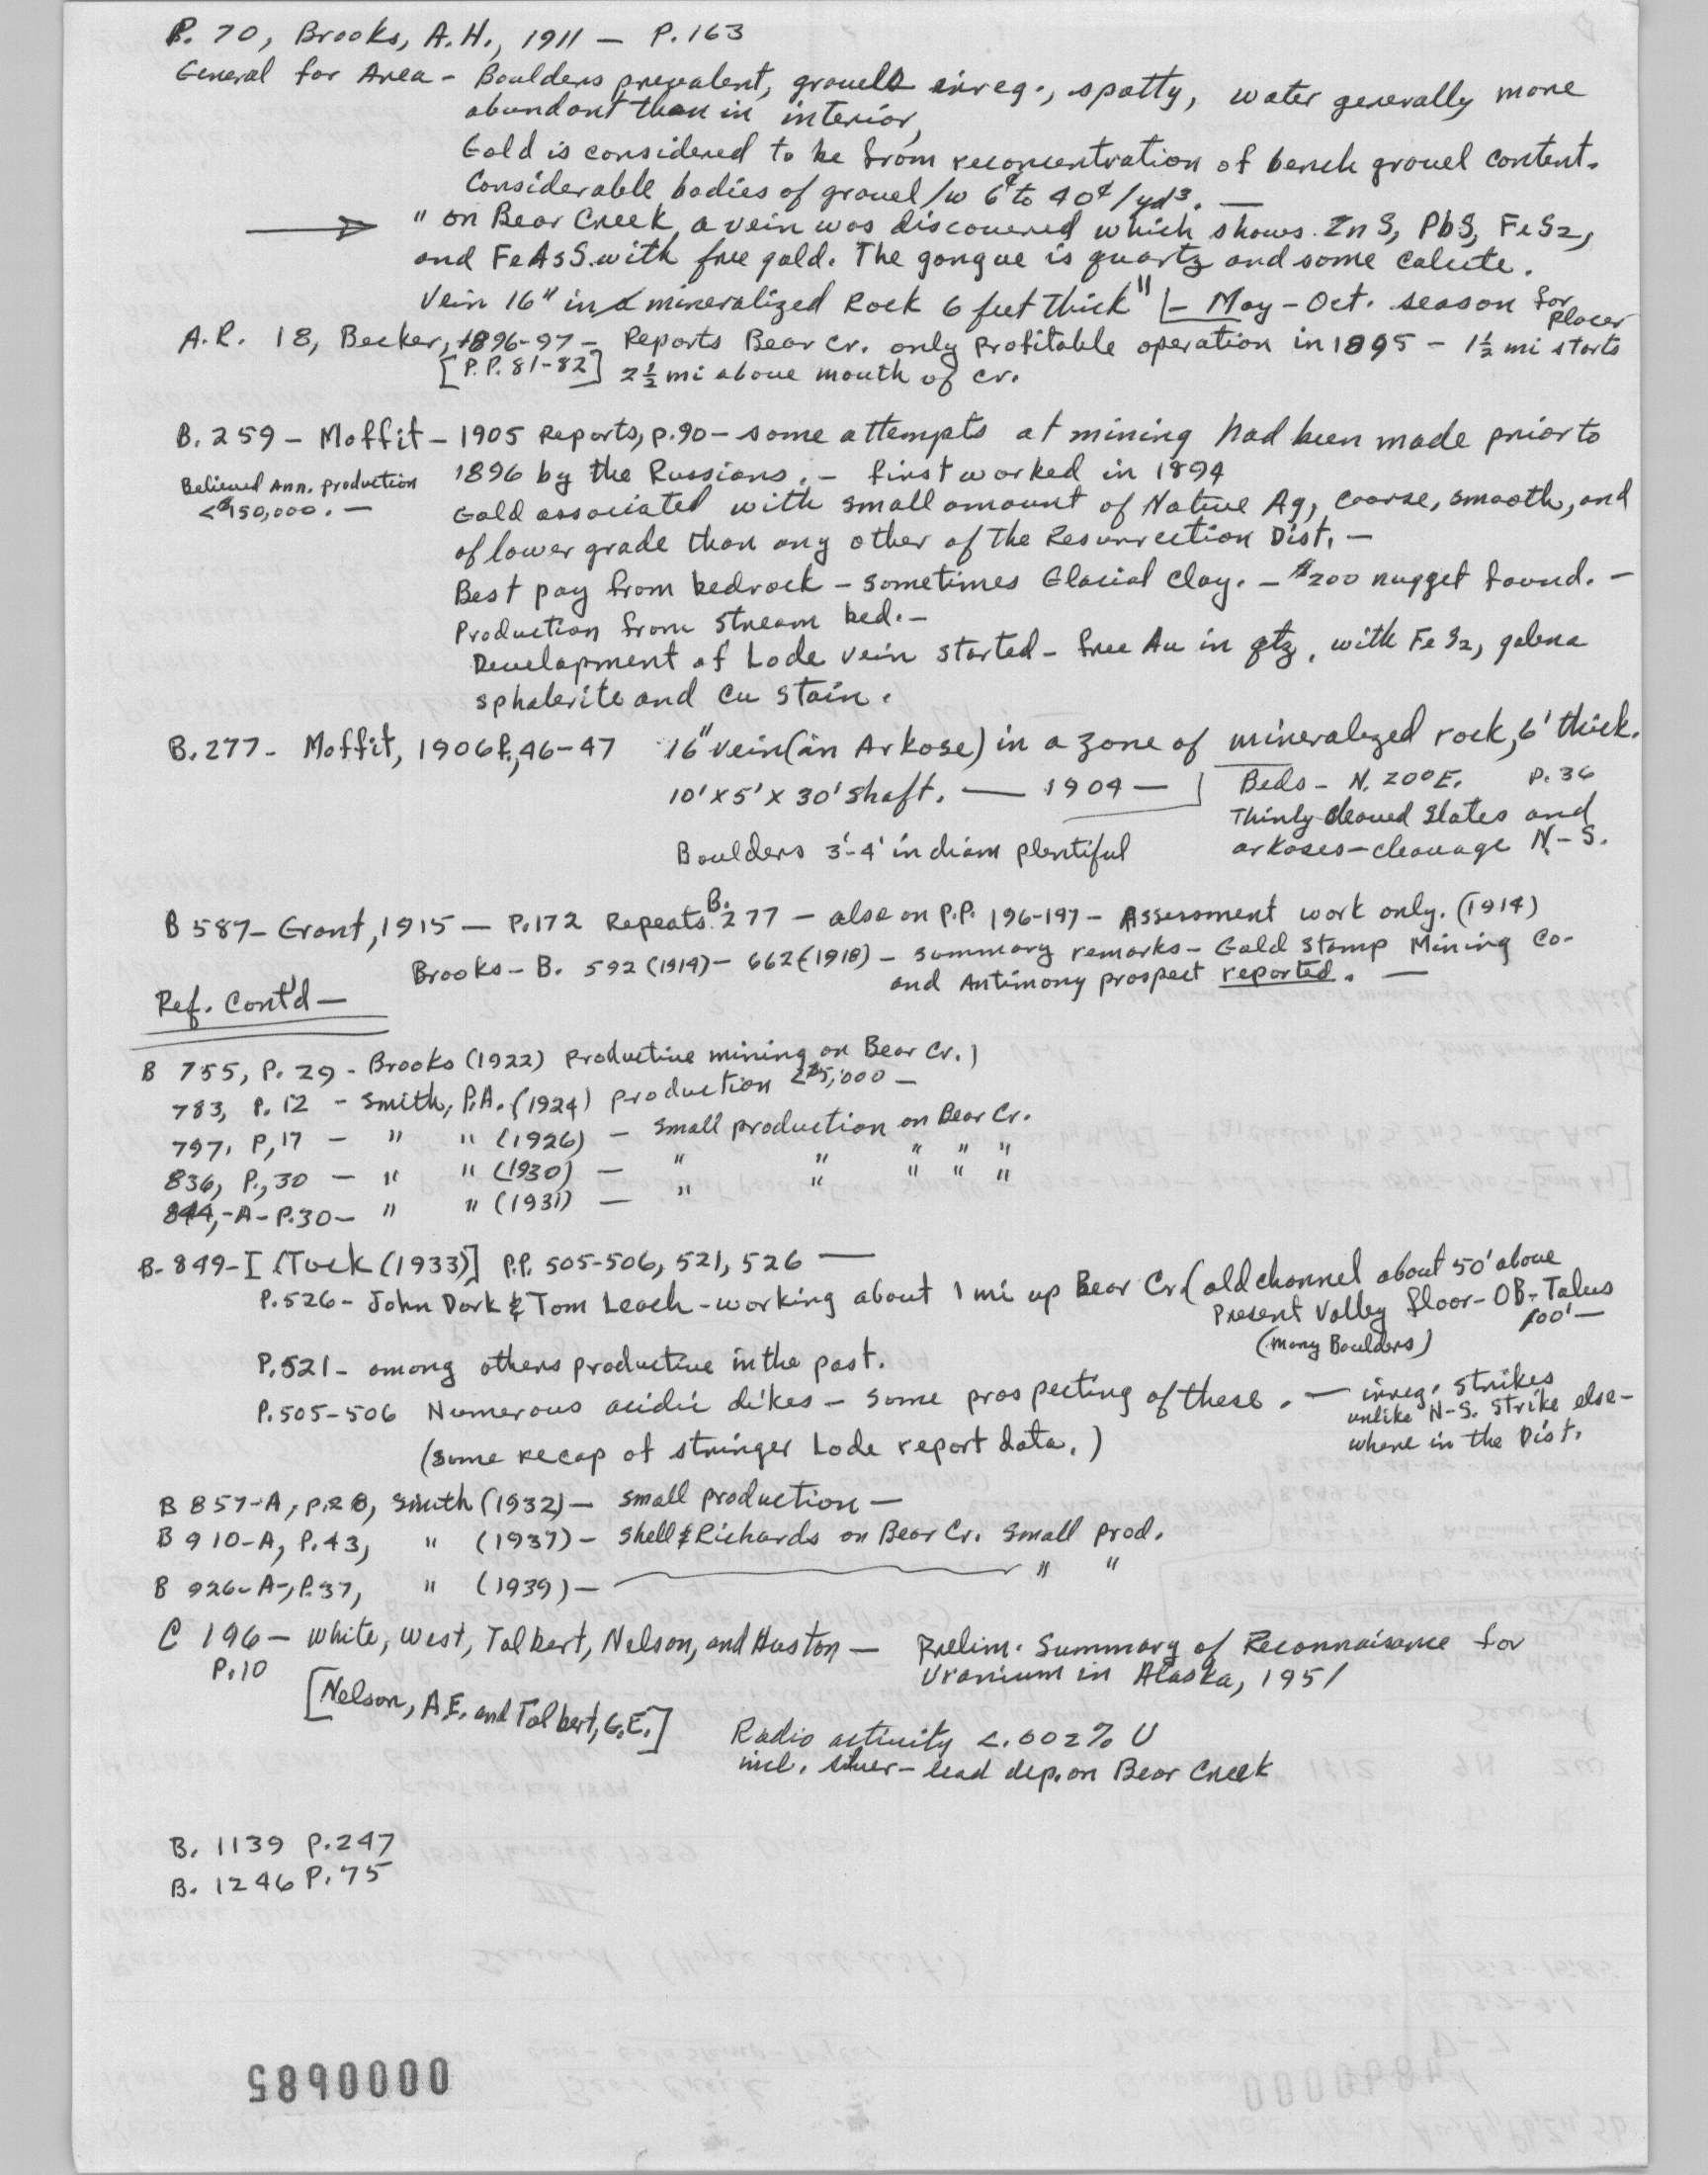 P. 70, Brooks, A.H., 1911 — P.163
General for Area - Boulders prevalent, gravels irreg., spotty, water generally more
abundant than in interior,
Gold is considered to be from reconcentration of bench gravel content.
Considerable bodies of gravel /w 6¢ to 40¢/yd³. —
→ " on Bear Creek, a vein was discovered which shows ZnS, PbS, FeS2,
and FeAsS with free gold. The gangue is quartz and some calcite.
Vein 16" in a mineralized Rock 6 feet thick" - May - Oct. season for
placer
A.R. 18, Becker, 1896-97 - Reports Bear Cr. only profitable operation in 1895 - 1½ mi starts
[P.P. 81-82] 2½ mi above mouth of cr.
B. 259 - Moffit - 1905 Reports, p.90 - some attempts at mining had been made prior to
Believed Ann. production 1896 by the Russians. - first worked in 1894
<$150,000. — Gold associated with small amount of Native Ag, coarse, smooth, and
of lower grade than any other of the Resurrection Dist. —
Best pay from bedrock - sometimes Glacial Clay. - $200 nugget found. —
Production from stream bed. -
Development of Lode vein started - free Au in qtz, with FeS2, galena
sphalerite and Cu stain.
B. 277 - Moffit, 1906 P., 46-47 16" vein (in Arkose) in a zone of mineralized rock, 6' thick.
10' x 5' x 30' shaft. — 1904 — Beds - N. 20°E. P. 36
Thinly cleaved slates and
Boulders 3'-4' in diam plentiful arkoses - cleavage N-S.
B 587 - Grant, 1915 — P.172 Repeats B. 277 - also on P.P. 196-197 - Assessment work only. (1914)
Brooks - B. 592 (1914) - 662 (1918) - summary remarks - Gold Stamp Mining Co -
and Antimony prospect reported. —
Ref. Cont'd —
B 755, P. 29 - Brooks (1922) productive mining on Bear Cr.)
783, P. 12 - Smith, P.A. (1924) production <$5,000 —
797, P, 17 - " " (1926) - Small production on Bear Cr.
836, P., 30 - " " (1930) - " " " " "
844, -A- P.30 - " " (1931) - " " " " "
B-849-I [Tuck (1933)] P.P. 505-506, 521, 526 —
P.526 - John Dork & Tom Leach - working about 1 mi up Bear Cr (old channel about 50' above
Present Valley floor - OB - Talus
100' —
(many Boulders)
P.521 - among others productive in the past.
P.505-506 Numerous acidic dikes - some prospecting of these. — irreg. strikes
unlike N-S. strike else-
where in the Dist.
(some recap of stringer Lode report data.)
B 857-A, p.28, Smith (1932) - small production -
B 910-A, P.43, " (1937) - Shell & Richards on Bear Cr. Small prod.
B 926-A-, P.37, " (1939) - " "
C 196 - White, West, Tolbert, Nelson, and Huston — Prelim. Summary of Reconnaisance for
P.10 Uranium in Alaska, 1951
[Nelson, A.E. and Tolbert, G.E.]
Radio activity <.002% U
incl. silver-lead dep. on Bear Creek
B. 1139 P.247
B. 1246 P.75
00000685